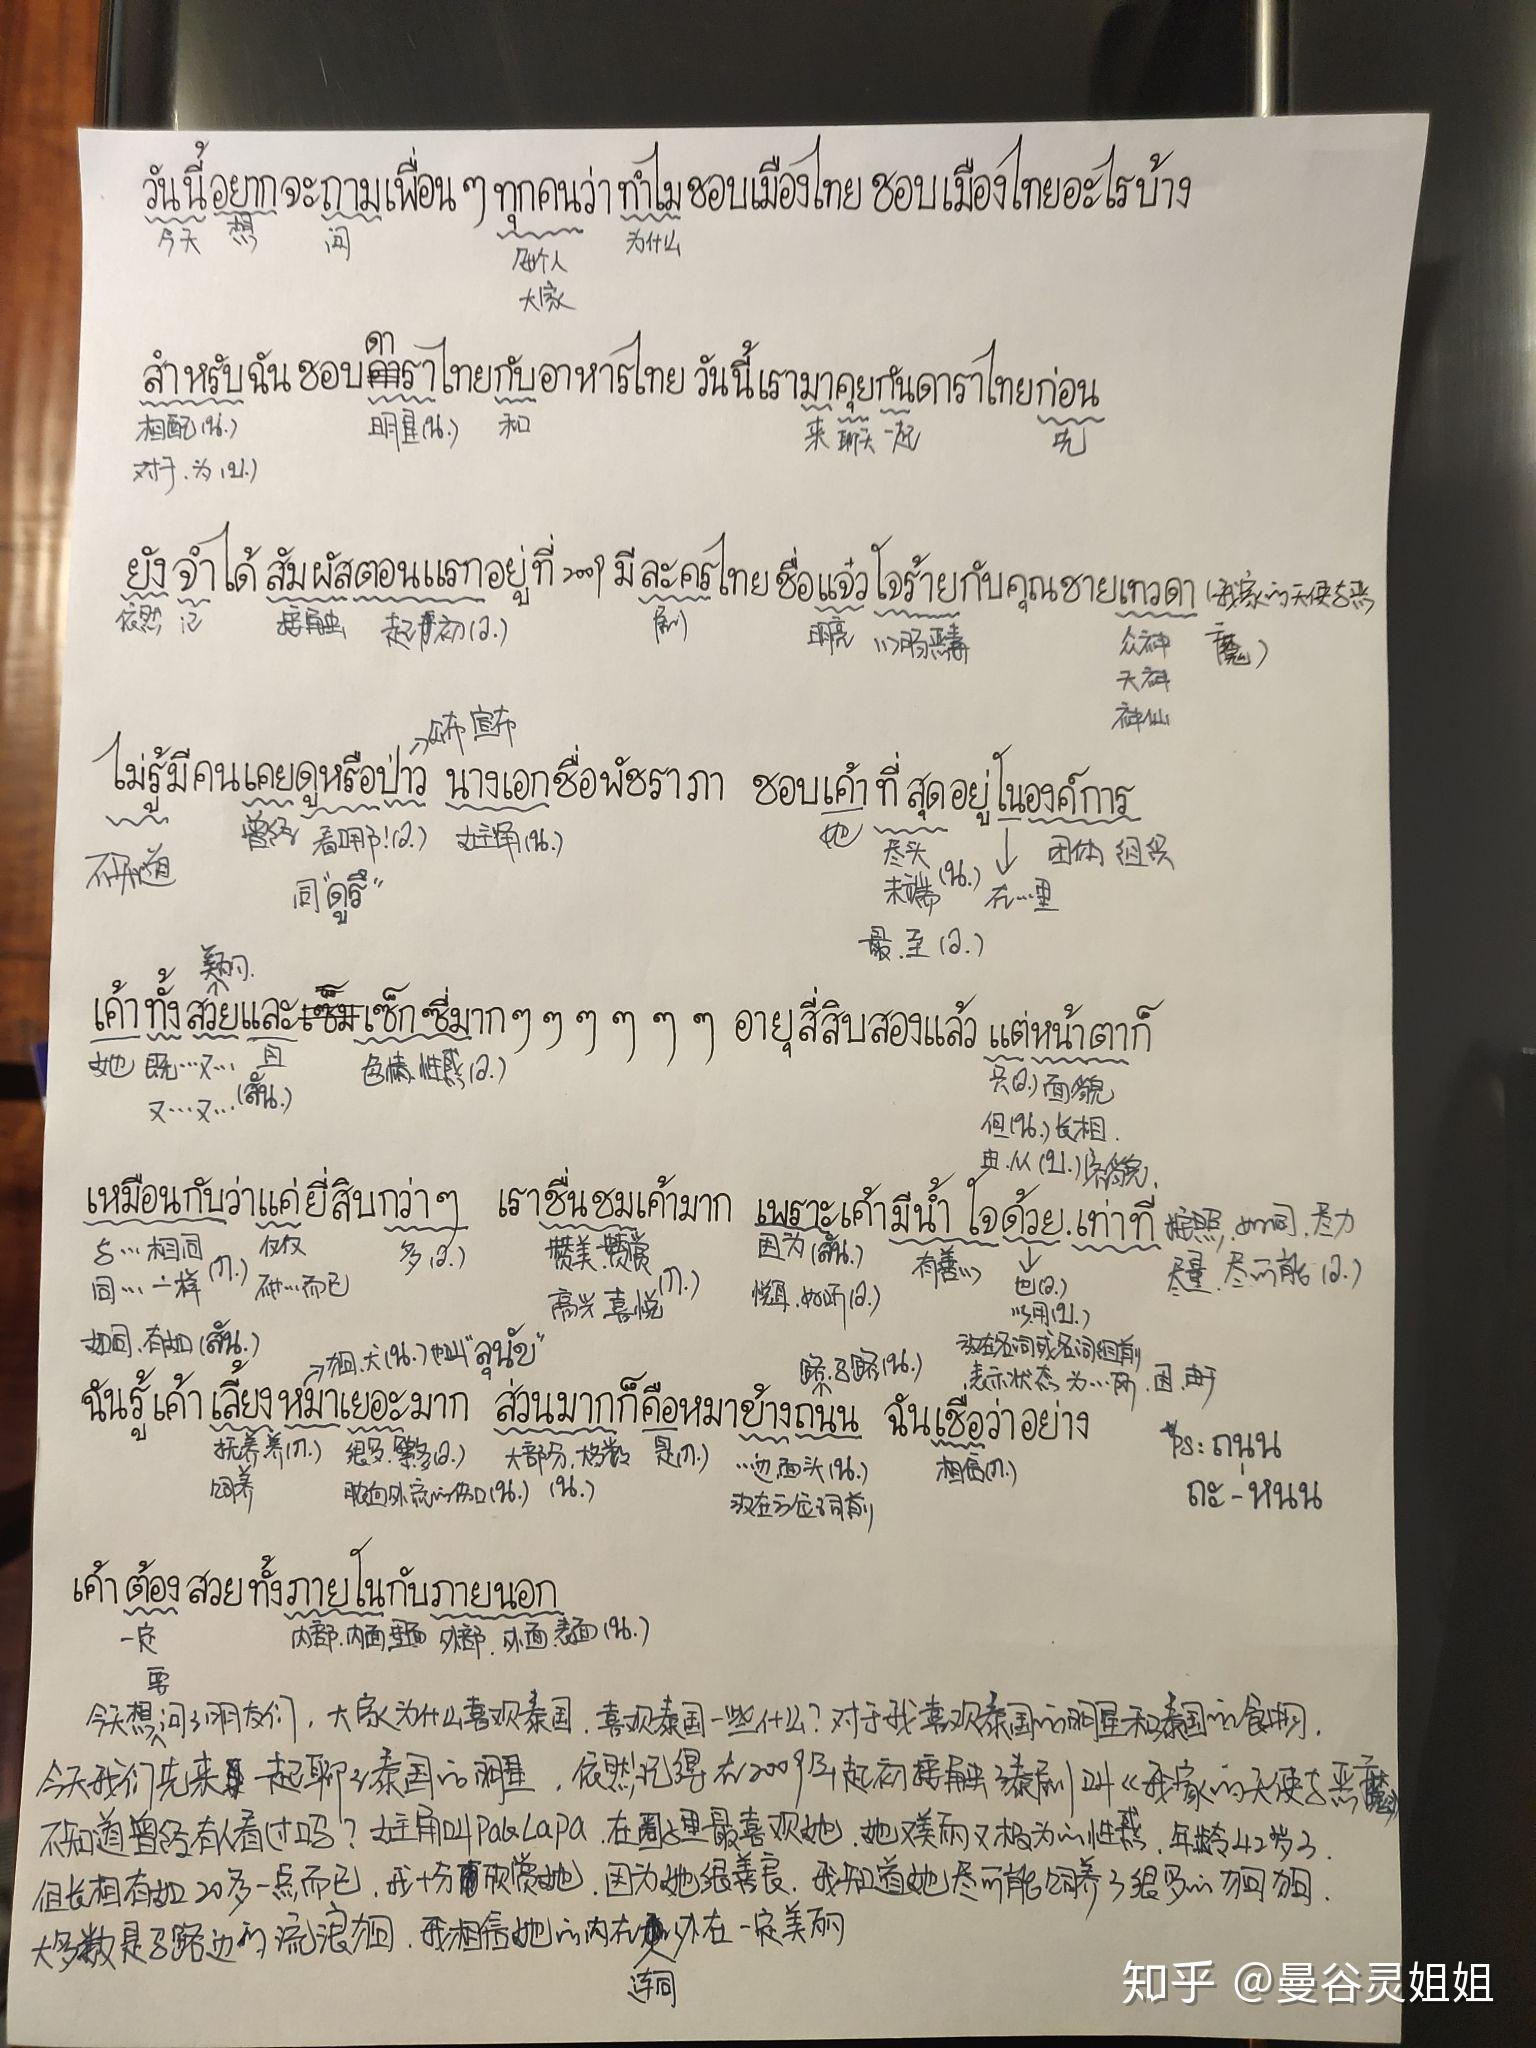 วันนี้อยากจะถามเพื่อนๆทุกคนว่าทำไมชอบเมืองไทย ชอบเมืองไทยอะไรบ้าง
今天 想 问 每个人 为什么
大家
ดา
สำหรับฉันชอบดาราไทยกับอาหารไทย วันนี้เรามาคุยกันดาราไทยก่อน
相配(น.) 明星(น.) 和 来 聊天 一起 先
对于.为(บ.)
ยังจำได้ สัมผัสตอนแรกอยู่ที่ 2009 มีละครไทย ชื่อแจ๋วใจร้ายกับคุณชายเทวดา (我家的天使与恶魔)
依然 记 接触 起初(ว.) 剧 明亮 心肠恶毒 众神
天神
神仙
→公布 宣布
ไม่รู้มีคนเคยดูหรือป่าว นางเอกชื่อพัชราภา ชอบเค้าที่สุดอยู่ในองค์การ
不知道 曾经 看 女主角(น.) 她 尽头 团体 组织
同"ดูรึ" 末端(น.) 在…里
最.至(ว.)
美丽.
เค้าทั้งสวยและเซ็กซี่มากๆๆๆๆๆๆ อายุสี่สิบสองแล้ว แต่หน้าตาก็
她 既…又… 且 色情.性感(ว.) 只(ว.) 面貌
又…又…(สัน.) 但(น.) 长相.
由.从(บ.) 容貌.
เหมือนกับว่าแค่ยี่สิบกว่าๆ เราชื่นชมเค้ามาก เพราะเค้ามีน้ำใจด้วย.เท่าที่ 按照.如同.尽力
与…相同 仅仅 多(ว.) 赞美.赞赏 因为(สัน.) 有善心 也(ว.) 尽量.尽所能(ว.)
同…一样(ก.) 不过…而已 高兴 喜悦(ก.) 悦耳.好听(ว.) 以.用(บ.)
如同.有如(สัน.) →狗.犬(น.)也叫"สุนัข" 路.马路(น.) 放在名词或名词组前
表示状态 为…所.因.由于
ฉันรู้เค้าเลี้ยงหมาเยอะมาก ส่วนมากก็คือหมาข้างถนน ฉันเชื่อว่าอย่าง
抚养.养(ก.) 很多.繁多(ว.) 大部分.大多数 是(ก.) …边.面.头(น.) 相信(ก.) Ps: ถนน
饲养 (น.) 放在方位词前 ถะ-หนน
เค้าต้องสวยทั้งภายในกับภายนอก
一定 内部.内面.里面 外部.外面.表面(น.)
要
今天想问了朋友们，大家为什么喜欢泰国.喜欢泰国一些什么？对于我喜欢泰国的明星和泰国的食物.
今天我们先来一起聊了泰国的明星，依然记得在2009年起初接触了泰剧叫《我家的天使与恶魔》
不知道曾经有人看过吗？女主角叫PaLaPa.在圈子里最喜欢她.她又美丽又极为的性感.年龄42岁了.
但长相有如20多一点而已.我十分欣赏她.因为她很善良.我知道她尽所能饲养了很多的狗狗.
大多数是马路边的流浪狗.我相信她的内在外在一定美丽
连同
知乎 @曼谷灵姐姐